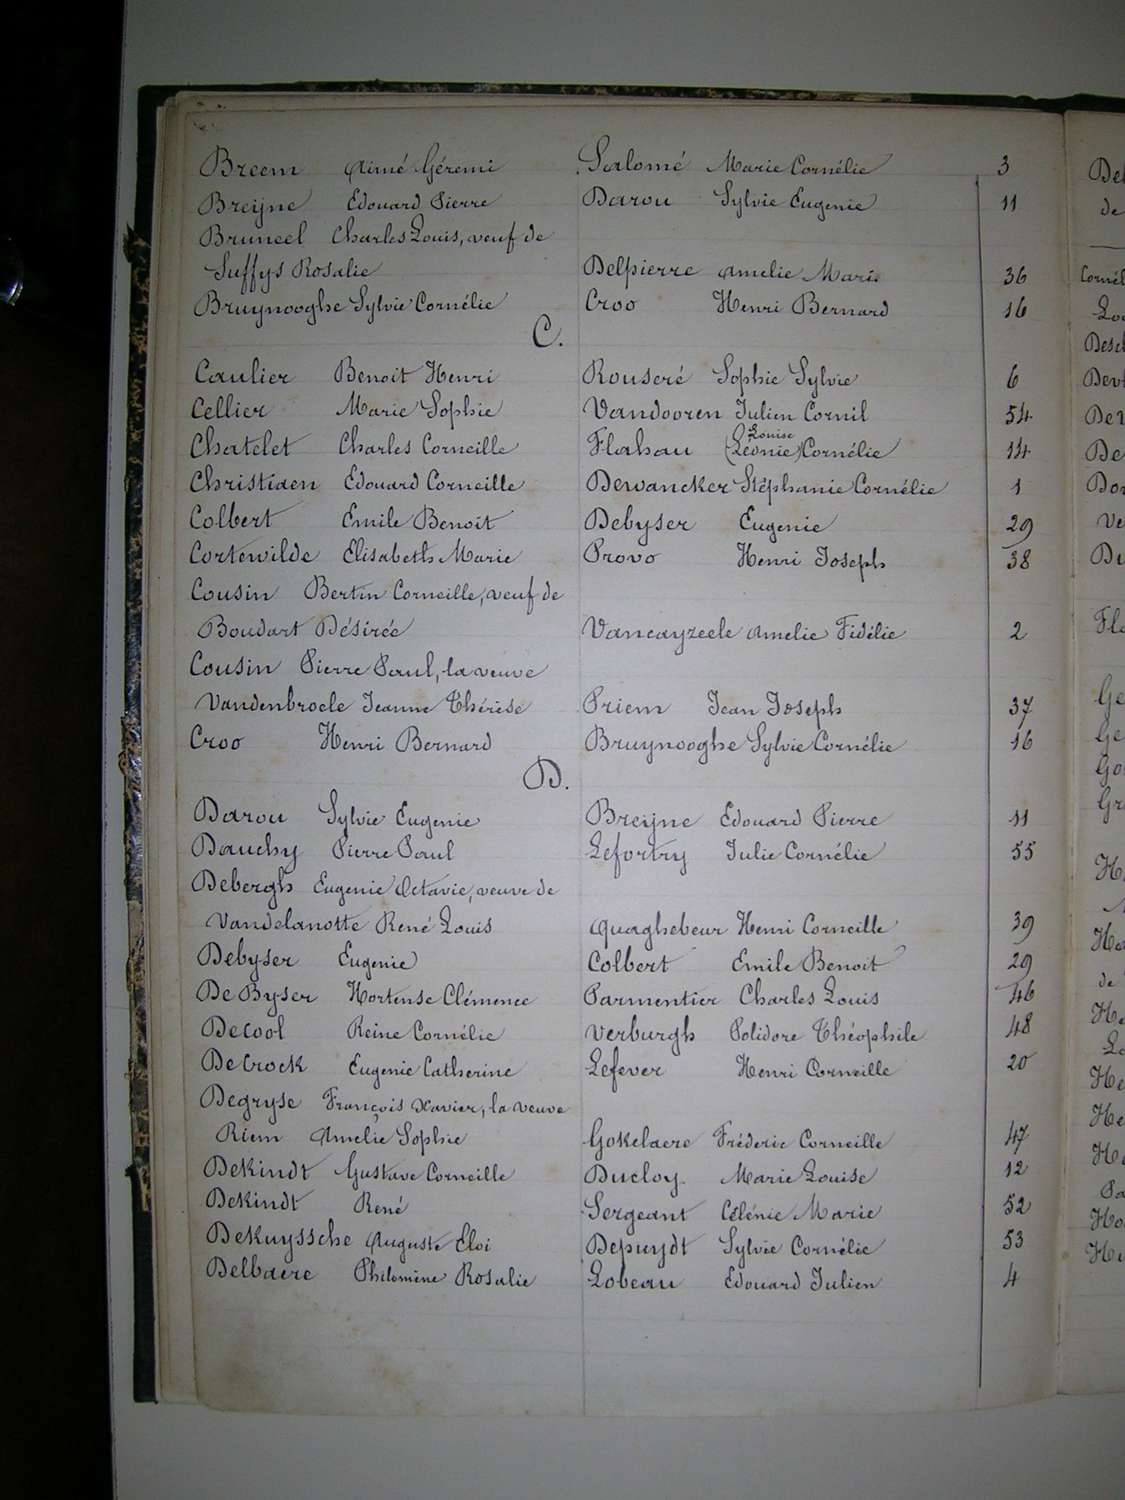 Breem Aimé Géremi Salomé Marie Cornélie 3
Breijne Edouard Pierre Darou Sylvie Eugenie 11
Bruneel Charles Louis, veuf de
Suffys Rosalie Delpierre Amelie Marie 36
Bruynooghe Sylvie Cornélie Croo Henri Bernard 16
C.
Caulier Benoit Henri Rouseré Sophie Sylvie 6
Cellier Marie Sophie Vandooren Julien Cornil 54
Louise
Chatelet Charles Corneille Flahau (Léonie) Cornélie 14
Christiaen Edouard Corneille Dewancker Stéphanie Cornélie 1
Colbert Emile Benoit Debyser Eugenie 29
Cortewilde Elisabeth Marie Provo Henri Joseph 38
Cousin Bertin Corneille, veuf de
Boudart Désirée Vancayzeele Amelie Fidélie 2
Cousin Pierre Paul, la veuve
Vandenbrocle Jeanne Thérèse Priem Jean Joseph 37
Croo Henri Bernard Bruynooghe Sylvie Cornélie 16
D.
Darou Sylvie Eugenie Breijne Edouard Pierre 11
Dauchy Pierre Paul Lefortry Julie Cornélie 55
Debergh Eugenie Octavie, veuve de
Vandelanotte René Louis Quaghebeur Henri Corneille 39
Debyser Eugenie Colbert Emile Benoit 29
De Byser Hortense Clémence Parmentier Charles Louis 46
Decool Reine Cornélie Verburgh Polidore Théophile 48
DeCrock Eugenie Catherine Lefever Henri Corneille 20
Degryse François Xavier, la veuve
Riem Amelie Sophie Gokelaere Fréderic Corneille 47
DeKindt Gustave Corneille Ducloy Marie Louise 12
DeKindt René Sergeant Célénie Marie 52
DeKuyssche Auguste Eloi Depuydt Sylvie Cornélie 53
Delbaere Philomène Rosalie Lobeau Edouard Julien 4